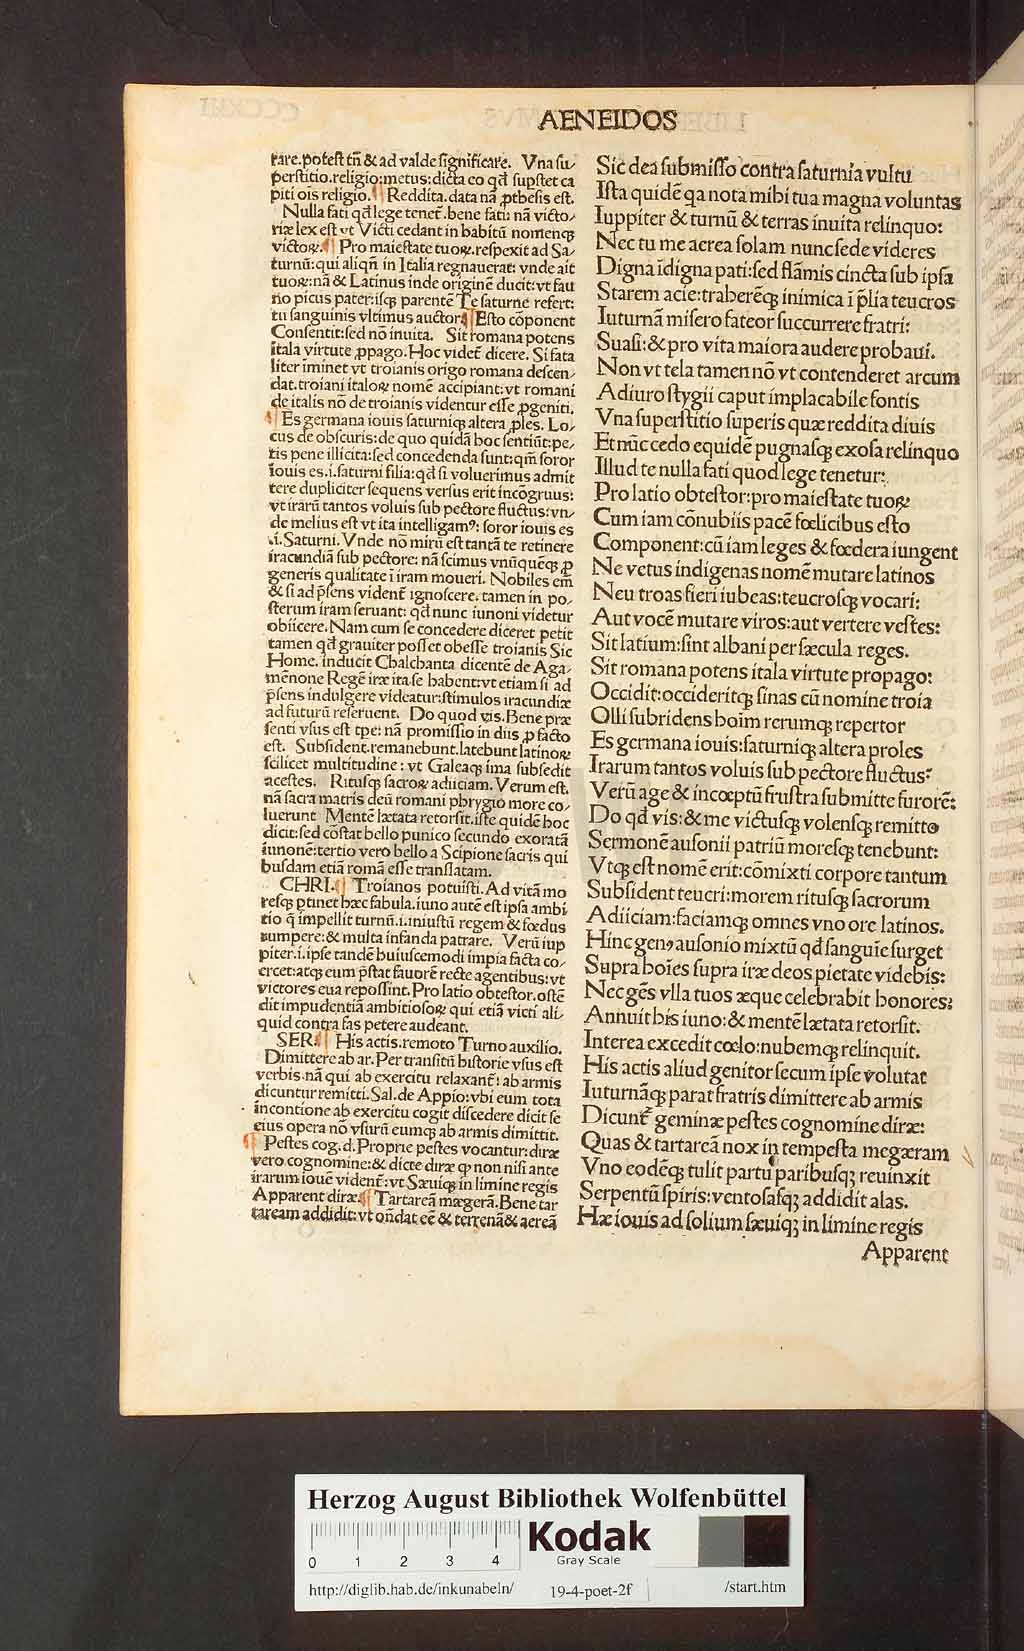 AENEIDOS
rare.potest tñ & ad valde significare. Vna su/
perstitio.religio:metus:dicta eo qđ supstet ca
piti ois religio. Reddita.data nã ꝓthesis est.
Nulla fati qđ lege teneť.bene fati: nã victo/
riæ lex est vt Victi cedant in habitũ nomenqꝫ
victoꝝ. Pro maiestate tuoꝝ.respexit ad Sa/
turnũ:qui aliqñ in Italia regnauerat: vnde ait
tuoꝝ:nã & Latinus inde originẽ ducit:vt fau
no picus pater:isqꝫ parentẽ Te saturne refert:
tu sanguinis vltimus auctor. Esto cõponent
Consentit:sed nõ inuita. Sit romana potens
itala virtute ꝓpago. Hoc videť dicere. Si fata
liter iminet vt troianis origo romana descen/
dat.troiani italoꝝ nomẽ accipiant:vt romani
de italis nõ de troianis videntur esse ꝓgeniti.
Es germana iouis saturniqꝫ altera ꝓles. Lo/
cus de obscuris:de quo quidã hoc sentiũt:pe/
tis pene illicita:sed concedenda sunt:qm̃ soror
iouis es.i.saturni filia:qđ si voluerimus admit
tere dupliciter sequens versus erit incõgruus:
vt irarũ tantos voluis sub pectore fluctus:vn/
de melius est vt ita intelligamꝰ: soror iouis es
.i.Saturni. Vnde nõ mirũ est tantã te retinere
iracundiã sub pectore: nã scimus vnũquẽqꝫ ꝓ
generis qualitate i iram moueri. Nobiles em̃
& si ad p̃sens videnť ignoscere.tamen in po/
sterum iram seruant: qđ nunc iunoni videtur
obiicere. Nam cum se concedere diceret petit
tamen qđ grauiter posset obesse troianis Sic
Home. inducit Chalchanta dicentẽ de Aga/
mẽnone Regẽ iræ ita se habent:vt etiam si ad
p̃sens indulgere videatur:stimulos iracundiæ
ad futurũ reseruent. Do quod vis. Bene præ
senti vsus est tpe: nã promissio in diis ꝓ facto
est. Subsident.remanebunt.latebunt latinoꝝ
scilicet multitudine : vt Galeaqꝫ ima subsedit
acestes. Ritusqꝫ sacroꝝ adiiciam. Verum est.
nã sacra matris deũ romani phrygio more co/
luerunt Mentẽ lætata retorsit.iste quidẽ hoc
dicit:sed cõstat bello punico secundo exoratã
iunonẽ:tertio vero bello a Scipione sacris qui
busdam etiã romã esse translatam.
CHRI. Troianos potuisti. Ad vitã mo
resqꝫ ptinet hæc fabula.iuno autẽ est ipsa ambi
tio q̃ impellit turnũ.i.iniustũ regem & fœdus
rumpere:& multa infanda patrare. Verũ iup
piter.i.ipse tandẽ huiuscemodi impia facta co/
ercet:atqꝫ eum p̃stat fauorẽ recte agentibus:vt
victores eua repossint. Pro latio obtestor.ostẽ
dit impudentiã ambitiosoꝝ qui etiã victi ali/
quid contra fas petere audeant.
SER. His actis.remoto Turno auxilio.
Dimittere ab ar. Per transitũ historie vsus est
verbis.nã qui ab exercitu relaxanť: ab armis
dicuntur remitti. Sal. de Appio: vbi eum tota
incontione ab exercitu cogit discedere dicit se
eius opera nõ vsurũ eumqꝫ ab armis dimittit.
Pestes cog.d. Proprie pestes vocantur:diræ
vero cognomine:& dicte diræ ꝙ non nisi ante
irarum iouẽ videnť: vt Sæuiqꝫ in limine regis
Apparent diræ. Tartareã mægerã. Bene tar
taream addidit: vt oñdat eẽ & terrenã& aereã
Sic dea submisso contra saturnia vultu
Ista quidẽ qa nota mihi tua magna voluntas
Iuppiter & turnũ & terras inuita relinquo:
Nec tu me aerea solam nunc sede videres
Digna ĩdigna pati:sed flãmis cincta sub ipsa
Starem acie:traherẽqꝫ inimica ĩ p̃lia teucros
Iuturnã misero fateor succurrere fratri:
Suasi:& pro vita maiora audere probaui.
Non vt tela tamen nõ vt contenderet arcum
Adiuro stygii caput implacabile fontis
Vna superstitio superis quæ reddita diuis
Et nũc cedo equidẽ pugnasqꝫ exosa relinquo
Illud te nulla fati quod lege tenetur:
Pro latio obtestor:pro maiestate tuoꝝ
Cum iam cõnubiis pacẽ fœlicibus esto
Component:cũ iam leges & fœdera iungent
Ne vetus indigenas nomẽ mutare latinos
Neu troas fieri iubeas:teucrosqꝫ vocari:
Aut vocẽ mutare viros:aut vertere vestes:
Sit latium:sint albani per sæcula reges.
Sit romana potens itala virtute propago:
Occidit:occideritqꝫ sinas cũ nomine troia
Olli subridens hoim rerumqꝫ repertor
Es germana iouis:saturniqꝫ altera proles
Irarum tantos voluis sub pectore fluctus?
Verũ age & incœptũ frustra submitte furorẽ:
Do qđ vis:& me victusqꝫ volensqꝫ remitto
Sermonẽ ausonii patriũ moresqꝫ tenebunt:
Vtqꝫ est nomẽ erit:cõmixti corpore tantum
Subsident teucri:morem ritusqꝫ sacrorum
Adiiciam:faciamqꝫ omnes vno ore latinos.
Hinc genꝰ ausonio mixtũ qđ sanguĩe surget
Supra hoĩes supra iræ deos pietate videbis:
Nec gẽs vlla tuos æque celebrabit honores:
Annuit his iuno:& mentẽ lætata retorsit.
Interea excedit cœlo:nubemqꝫ relinquit.
His actis aliud genitor secum ipse volutat
Iuturnãqꝫ parat fratris dimittere ab armis
Dicunť geminæ pestes cognomine diræ:
Quas & tartareã nox in tempesta megæram
Vno eodẽqꝫ tulit partu paribusqꝫ reuinxit
Serpentũ spiris:ventosasqꝫ addidit alas.
Hæ iouis ad solium sæuiqꝫ in limine regis
Apparent
Herzog August Bibliothek Wolfenbüttel
0 1 2 3 4
Kodak
Gray Scale
http://diglib.hab.de/inkunabeln/ 19-4-poet-2f /start.htm